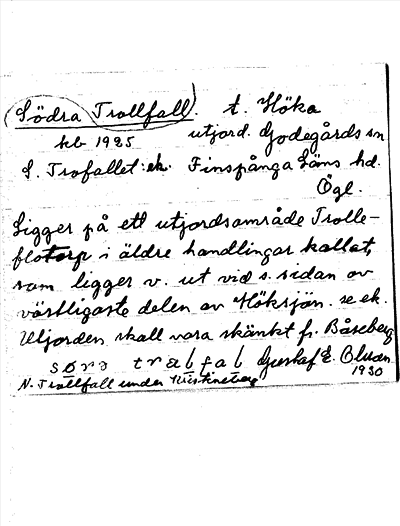 Södra Trollfall. t. Höka
kb 1925 utjord. Godegårds sn
S. Trofallet: ek. Finspånga Läns hd.
Ögl.
Ligger på ett utjordsområde Trolle-
flotorp i äldre handlingar kallat,
som ligger v. ut vid s. sidan av
västligaste delen av Höksjön. se ek.
Utjorden skall vara skänkt fr. Båseberg
Gustaf E. Olsson
1930
N. Trollfall under Kristineberg